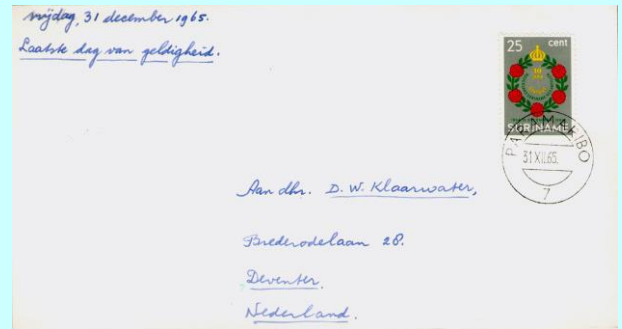 vrijdag, 31 december 1965.
Laatste dag van geldigheid.
25 cent
SURINAME
PARAMARIBO
31 XII.65.
7
Aan dhr. D. W. Klaarwater,
Brederodelaan 28.
Deventer.
Nederland.